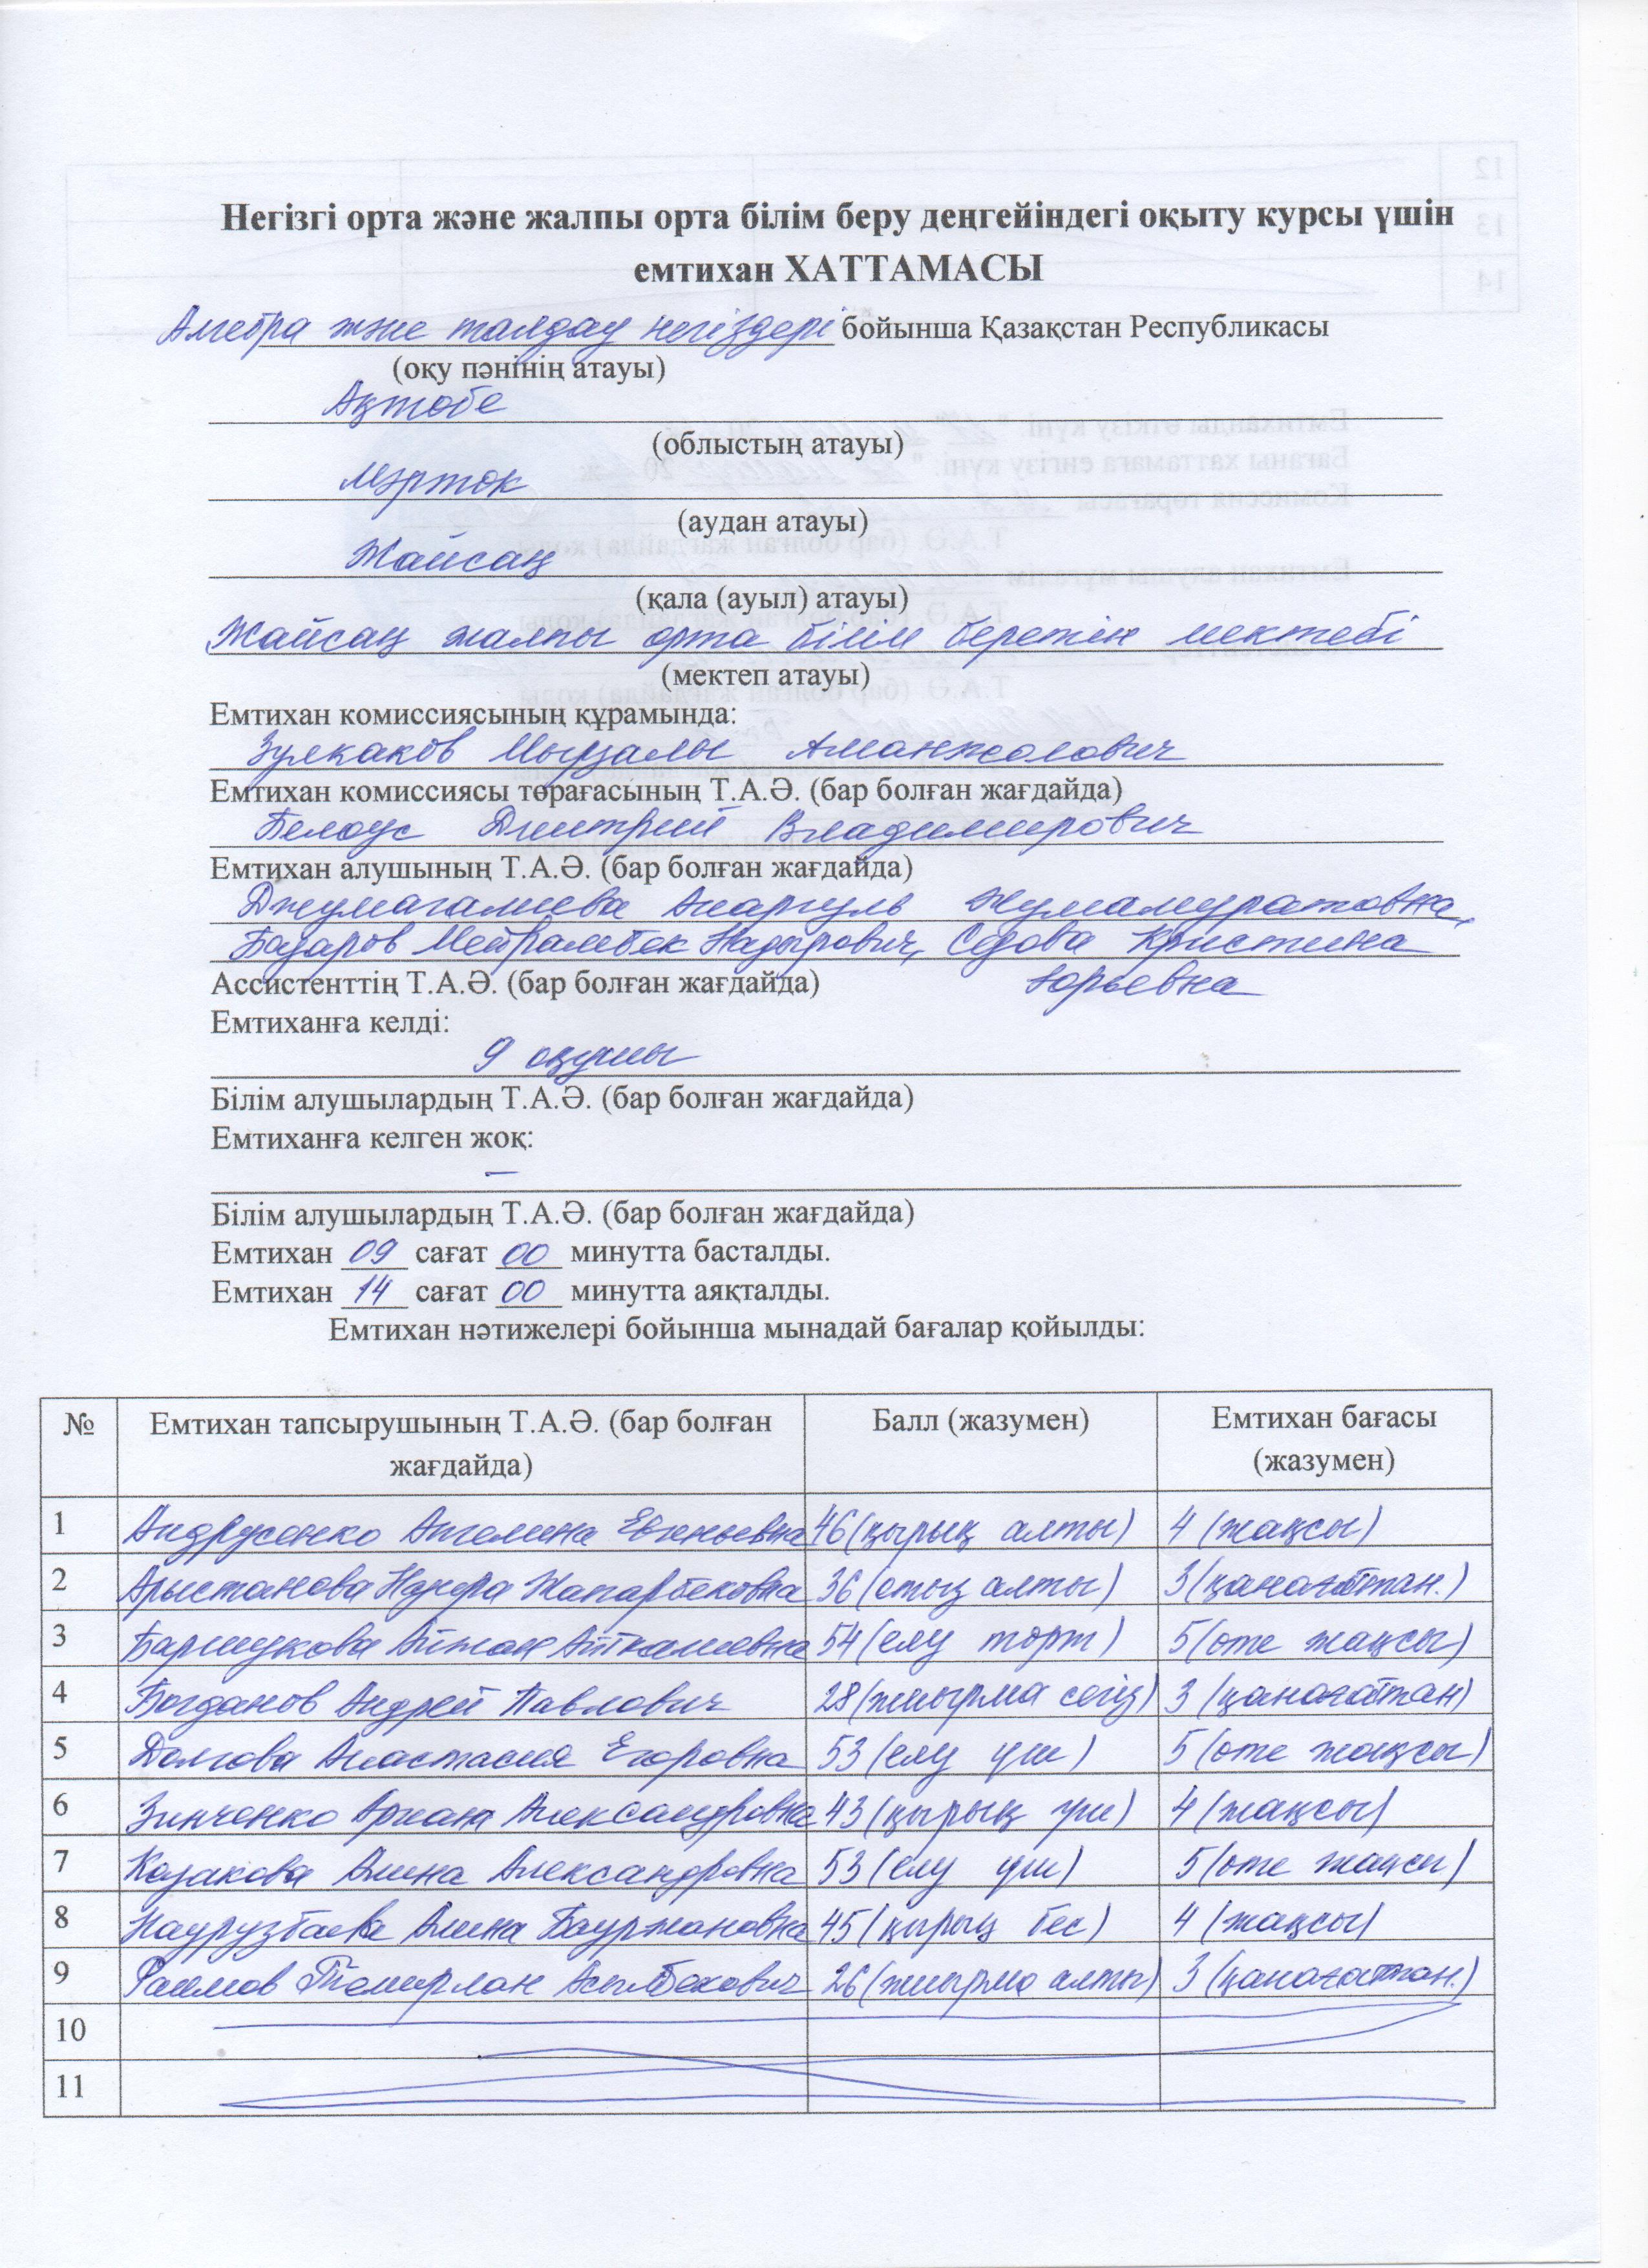 Негізгі орта және жалпы орта білім беру деңгейіндегі оқыту курсы үшін
емтихан ХАТТАМАСЫ
Алгебра және талдау негіздері бойынша Қазақстан Республикасы
(оқу пәнінің атауы)
Ақтөбе
(облыстың атауы)
Мәртөк
(аудан атауы)
Жайсаң
(қала (ауыл) атауы)
Жайсаң жалпы орта білім беретін мектебі
(мектеп атауы)
Емтихан комиссиясының құрамында:
Зулкаков Мырзалы Аманжолович
Емтихан комиссиясы төрағасының Т.А.Ә. (бар болған жағдайда)
Белоус Дмитрий Владимирович
Емтихан алушының Т.А.Ә. (бар болған жағдайда)
Джумагалиева Анаргуль Жумамуратовна,
Базаров Мейрамбек Надырович, Седова Кристина
Ассистенттің Т.А.Ә. (бар болған жағдайда) Юрьевна
Емтиханға келді:
9 оқушы
Білім алушылардың Т.А.Ә. (бар болған жағдайда)
Емтиханға келген жоқ:
–
Білім алушылардың Т.А.Ә. (бар болған жағдайда)
Емтихан 09 сағат 00 минутта басталды.
Емтихан 14 сағат 00 минутта аяқталды.
Емтихан нәтижелері бойынша мынадай бағалар қойылды:
№ Емтихан тапсырушының Т.А.Ә. (бар болған жағдайда) Балл (жазумен) Емтихан бағасы (жазумен)
1 Андрусенко Ангелина Евгеньевна 46 (қырық алты) 4 (жақсы)
2 Арыстанова Жапарбековна 36 (отыз алты) 3 (қанағаттан.)
3 Баршукова Айжан Айткалиевна 54 (елу төрт) 5 (өте жақсы)
4 Богданов Андрей Павлович 28 (жиырма сегіз) 3 (қанағаттан)
5 Долгова Анастасия Егоровна 53 (елу үш) 5 (өте жақсы)
6 Зинченко Александровна 43 (қырық үш) 4 (жақсы)
7 Казакова Алина Александровна 53 (елу үш) 5 (өте жақсы)
8 Наурузбаева Алина Бауржановна 45 (қырық бес) 4 (жақсы)
9 Темирлан Асылбекович 26 (жиырма алты) 3 (қанағаттан.)
10
11